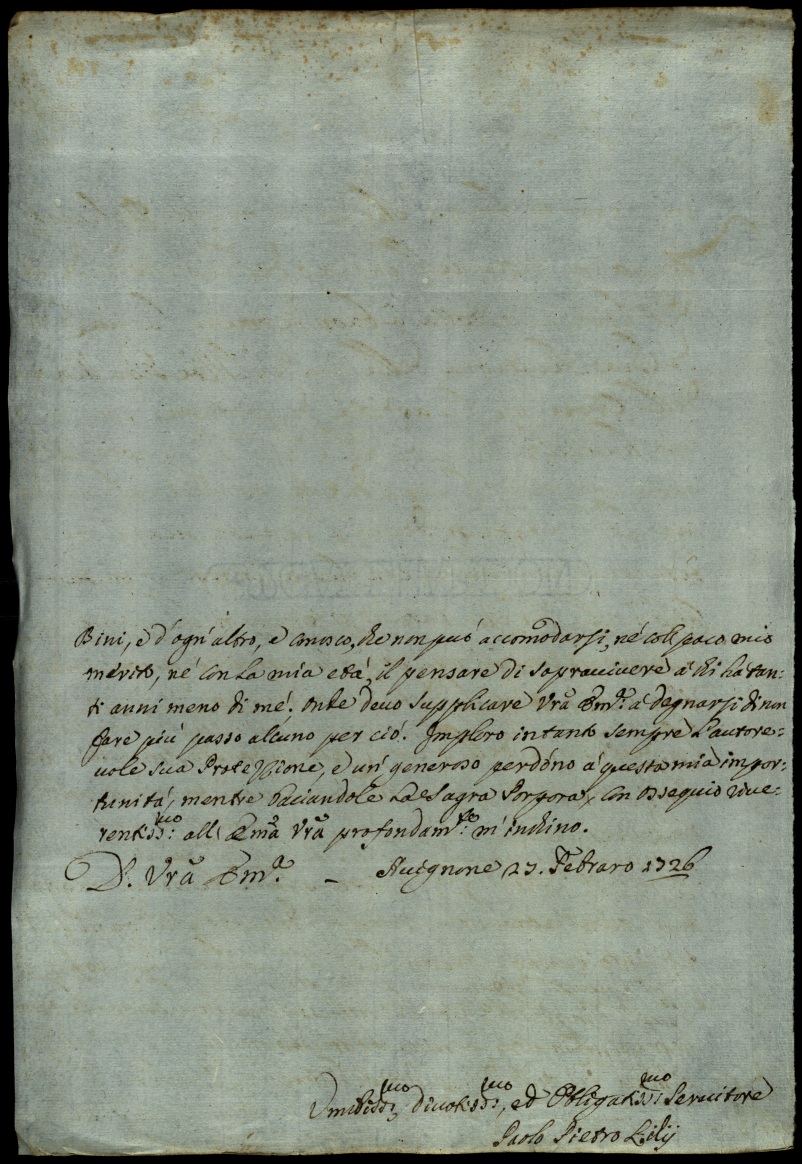 Bini, e d'ogn'altro, e conosco, che non può accomodarsi, né col poco mio
mérito, né con la mia età, il pensare di sopravivere à chi hà tan-
ti anni meno di mé. Onde devo supplicare Vrã Em.ª à degnarsi di non
fare più passo alcuno per ciò. Imploro intanto sempre l'autore-
uole sua Protezzione, e un generoso perdóno à questa mia impor-
tunità, mentre baciandole la Sagra Porpora, con ossequio rive-
rentiss:mo all' Emã Vrã profondam.te m'inchino.
D. Vrã Em.ª – Auignone 23. Febraro 1726
Umiliss:mo, diuotiss:mo, ed Obligatiss:mo Seruitore
Paolo Pietro Lilij